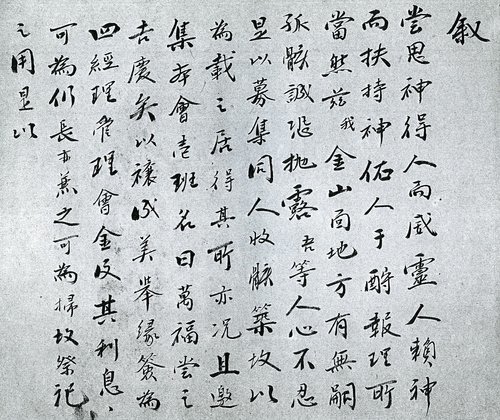 叙
尝思神得人而感靈人賴神
而扶持神佑人于酧報理所
當然兹我金山面地方有無嗣
孤骸誠恐抛露吾等人心不忍
是以募集同人收骸築坟以
為載之居得其所亦况且邀
集本會壱班名曰萬福尝之
吉慶矣以襄成美舉緣簽為
四經理管理會金及其利息、
可為仍長亦兼之可為掃坟祭祀
之用是以